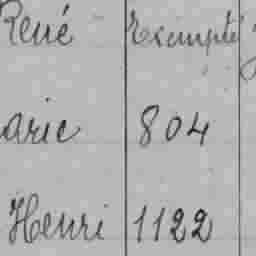 René Exempté
arie 804
Henri 1122